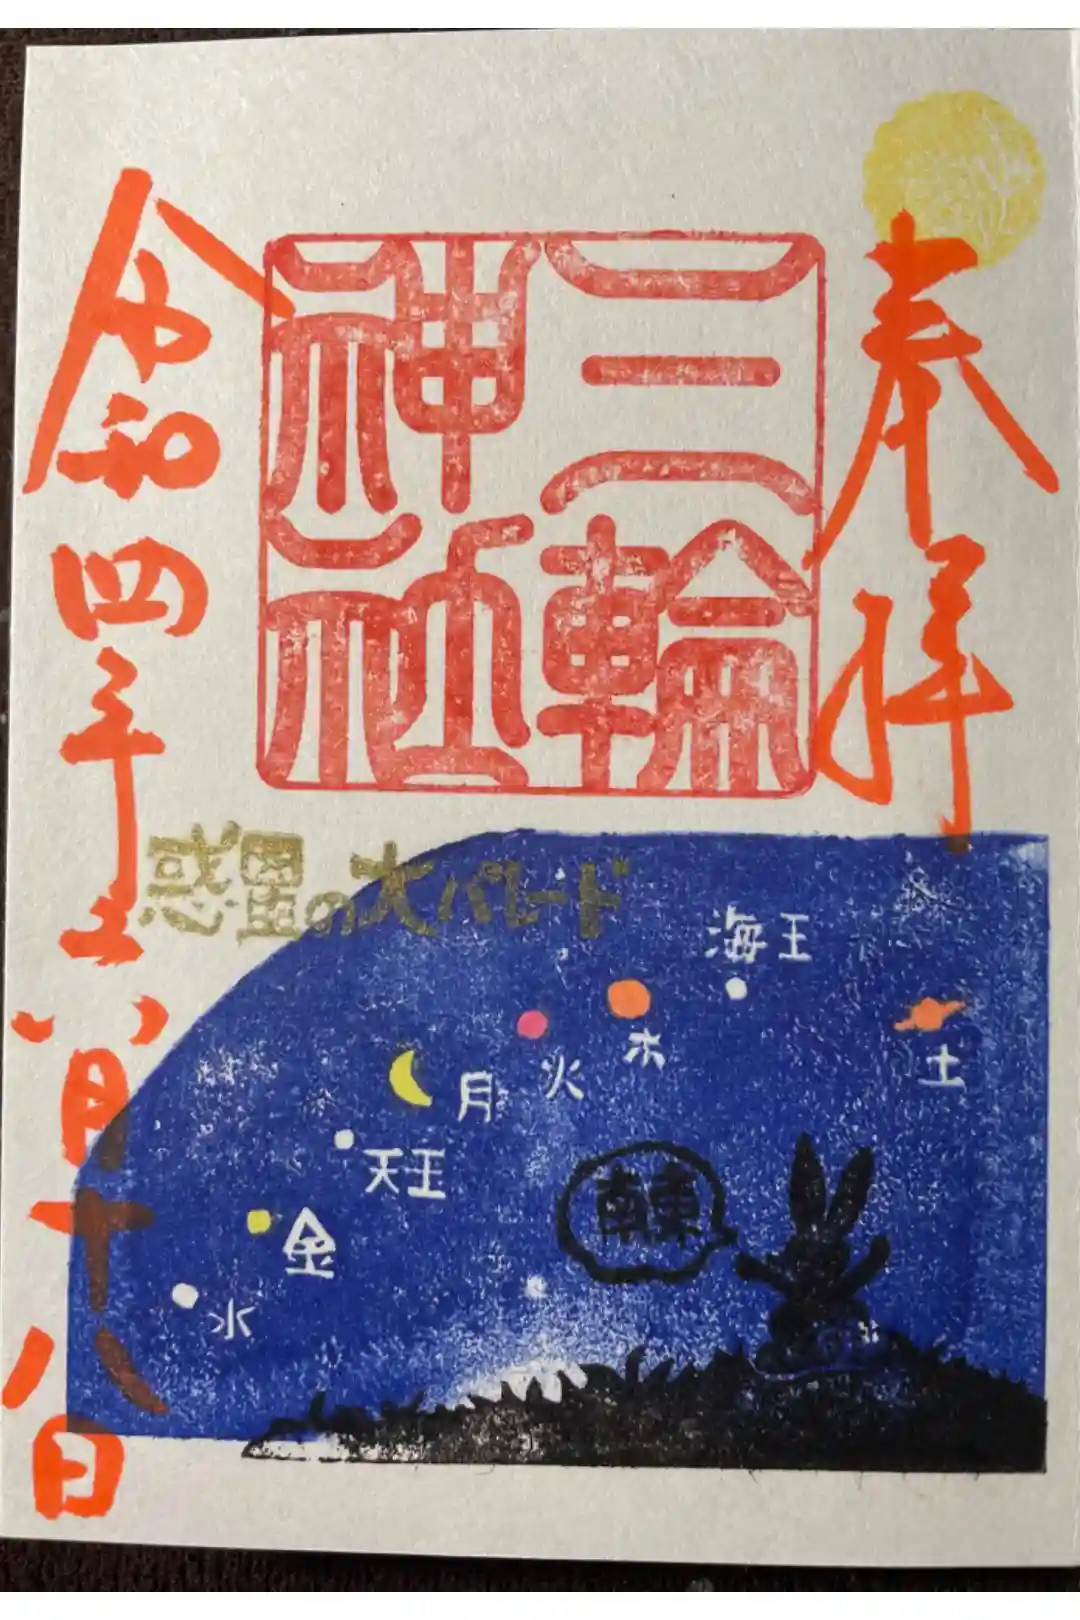 奉拝
三輪
神社
令和四年六月十八日
惑星の大パレード
海王
木
土
火
月
天王
金
水
南東